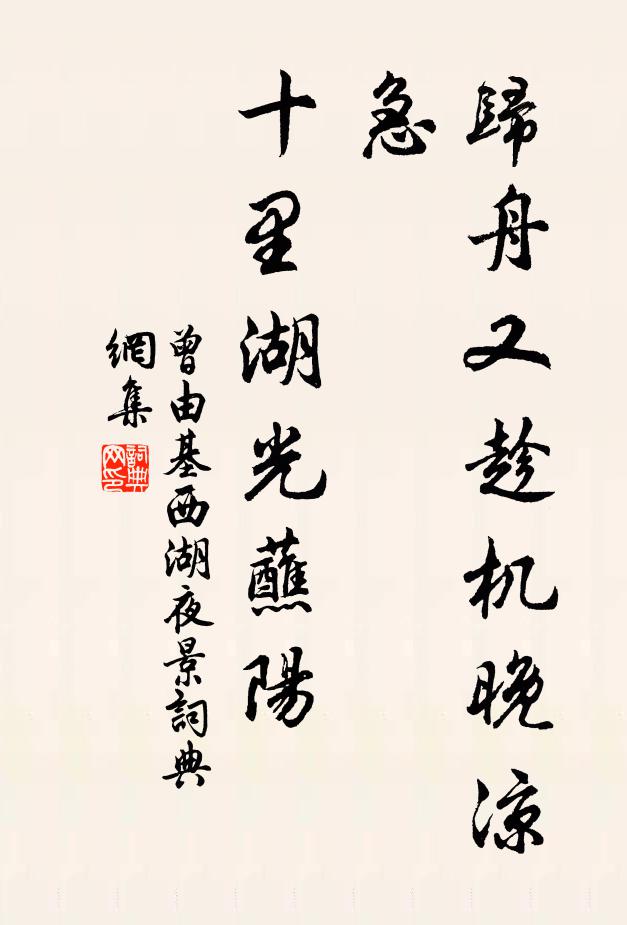 歸舟又趁机晚凉
急
十里湖光蘸陽
曾由基西湖夜景詞典
網集
詞典
网印